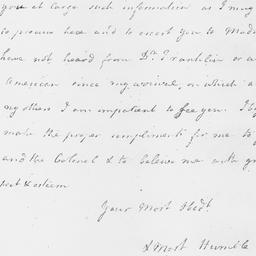 you at large such information as I may
to procure here and to escort you to Mad
have not heard from Dr. Franklin or a
American since my arrival, on which a
ny others I am impatient to see you. I be
make the proper compliments for me to
and the Colonel & to believe me with gr
pect & esteem
Your Most Obedt.
& Most Humble